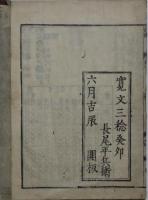 寛文三稔癸卯
長尾平兵衛
六月吉辰　開板